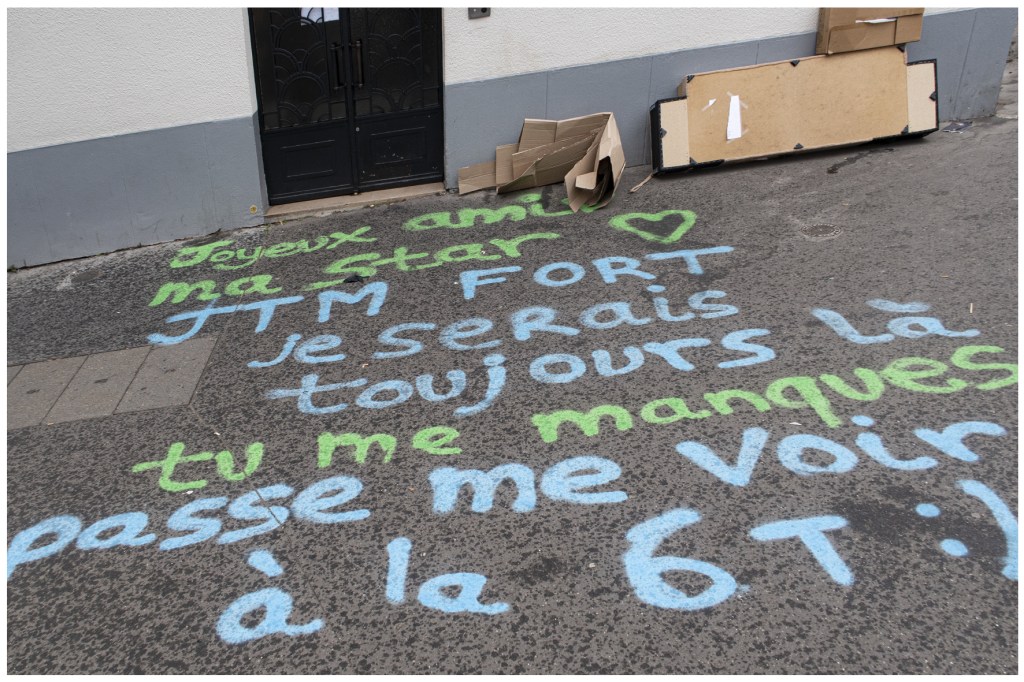 Joyeux amis
ma star ♡
JTM FORT
je serais
toujours là
tu me manques
passe me voir
à la 6T :)